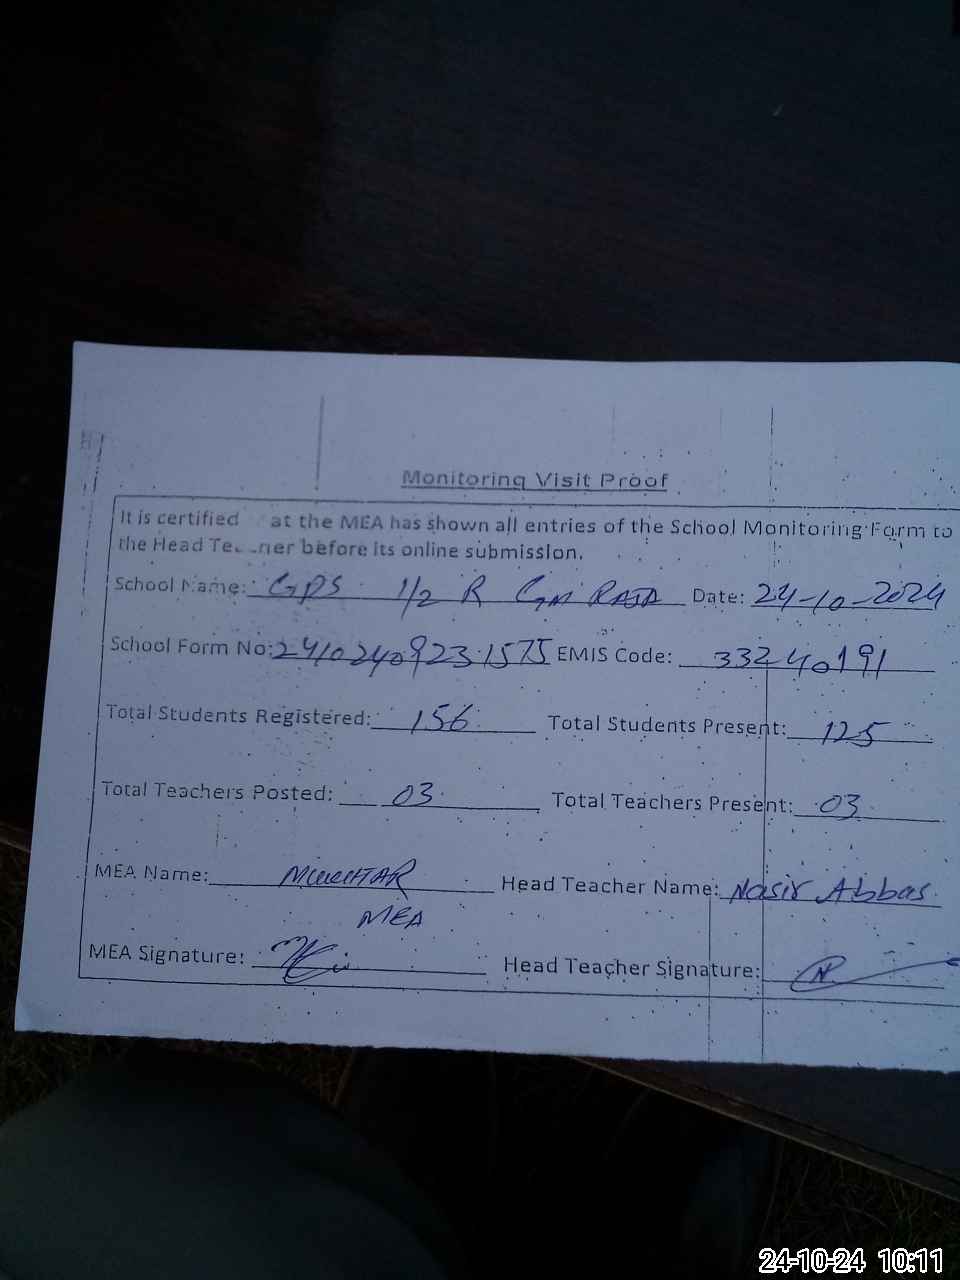 Monitoring Visit Proof
It is certified at the MEA has shown all entries of the School Monitoring Form to
the Head Te ner before its online submission.
School Name: GPS 1/2 R Date: 24-10-2024
School Form No: 24102409231575 EMIS Code: 33240191
Total Students Registered: 156 Total Students Present: 125
Total Teachers Posted: 03 Total Teachers Present: 03
MEA Name: MUKHTAR Head Teacher Name: Nasir Abbas
MEA
MEA Signature: Head Teacher Signature:
24-10-24 10:11